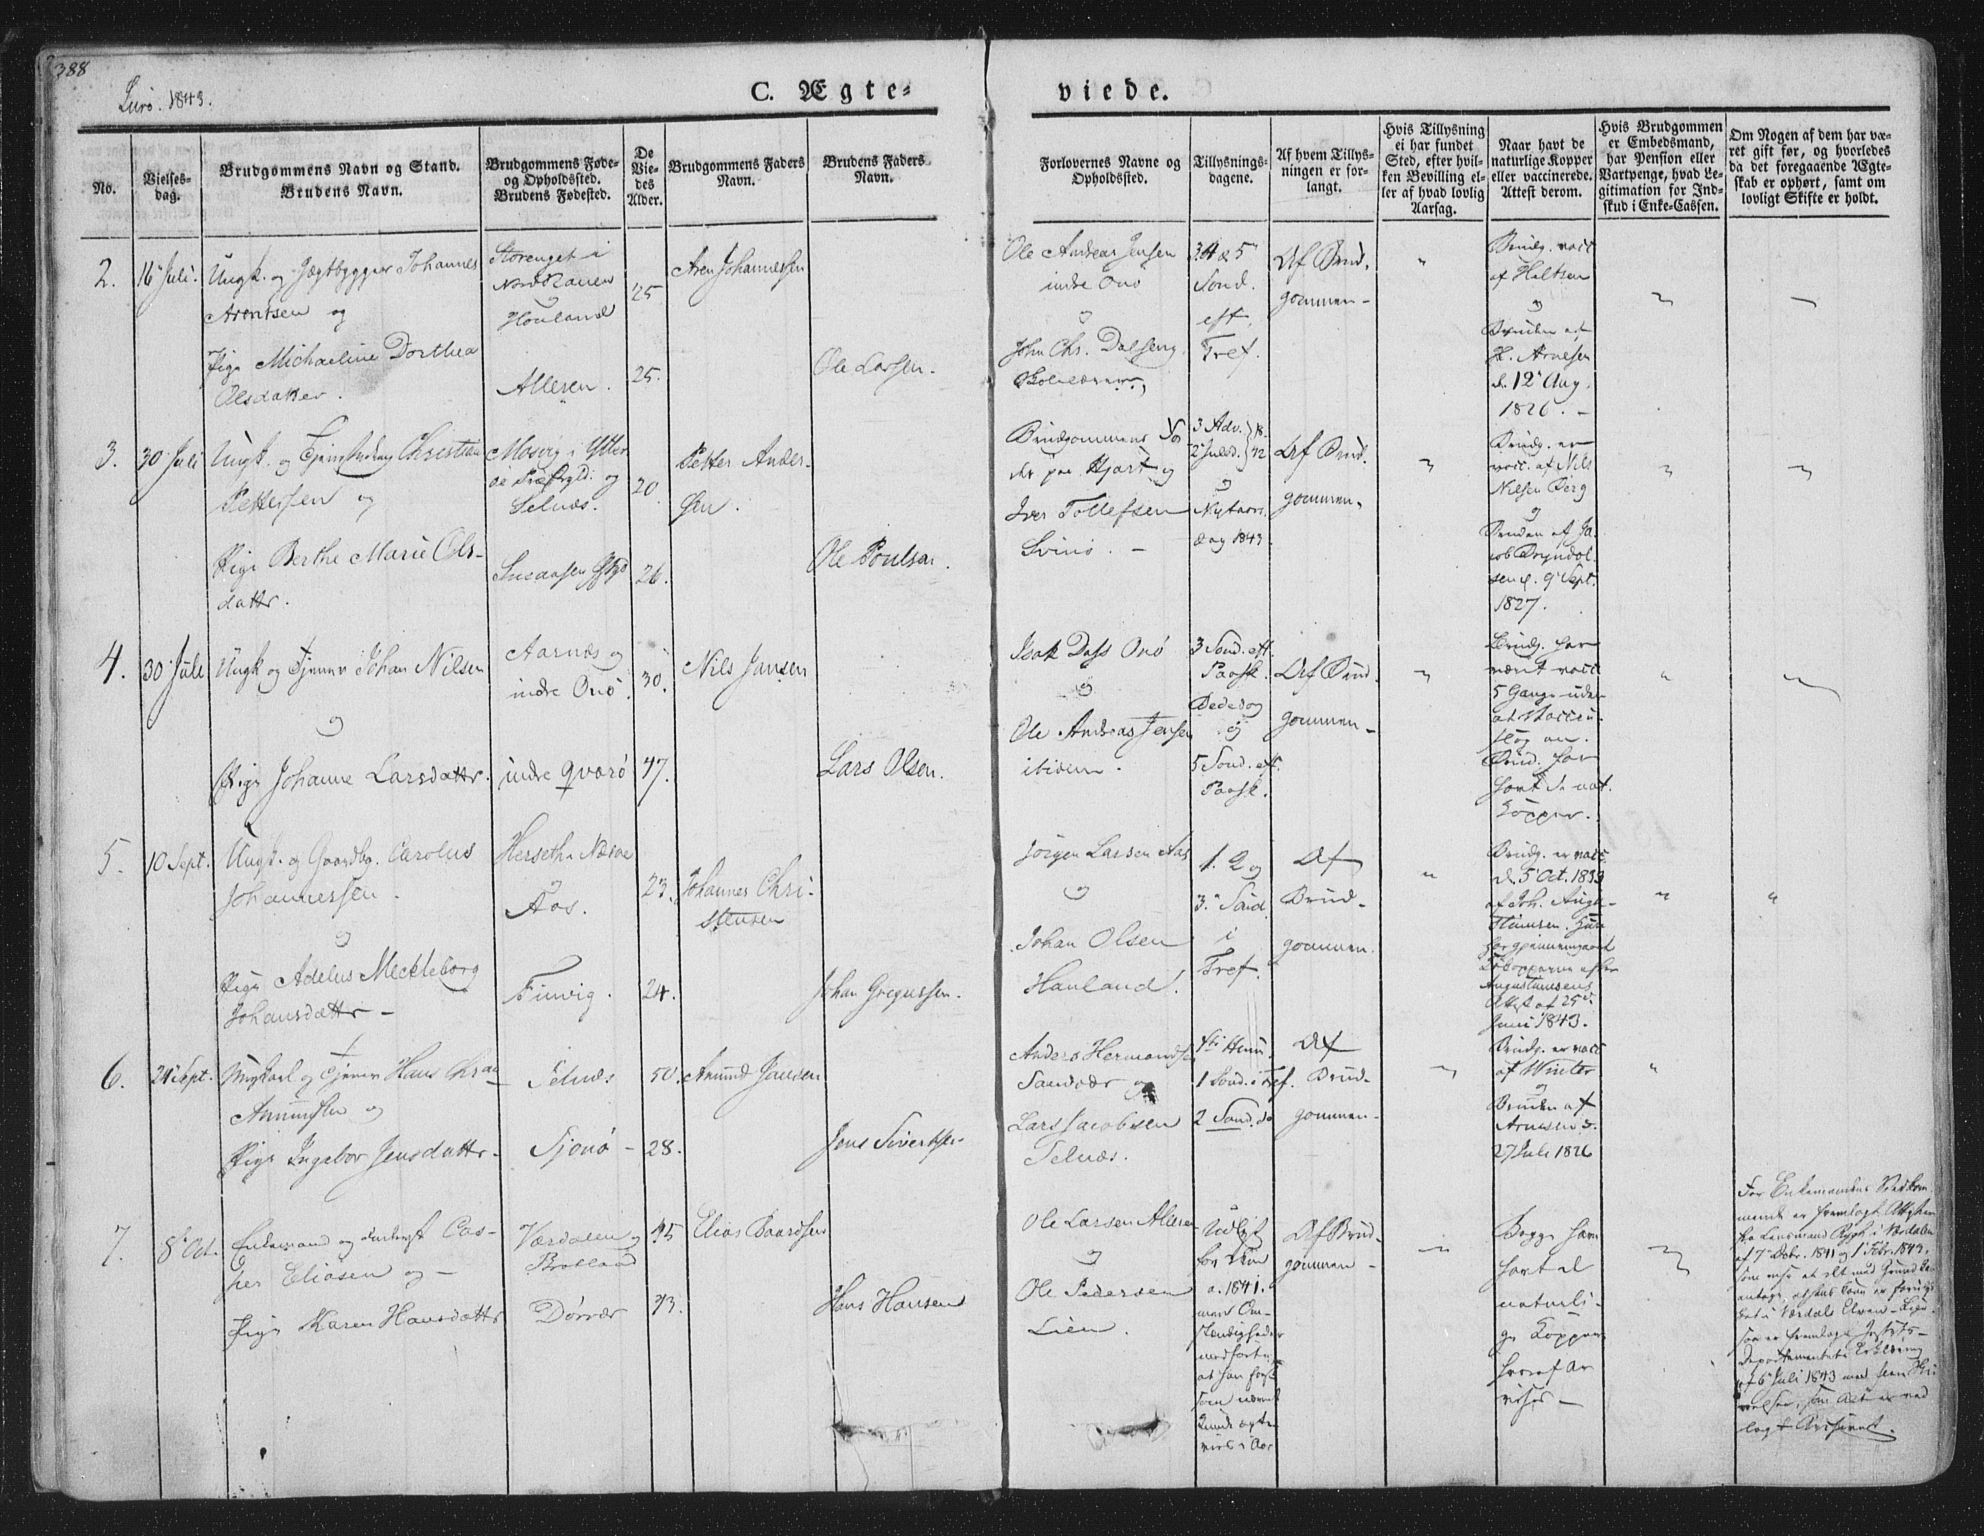 388
Lurö. 1843.
C. Ægte-
viede.
No.
Vielses-
dag.
Brudgommens Navn og Stand.
Brudens Navn.
Brudgommens Føde-
og Opholdssted.
Brudens Fødested.
De
Vie-
des
Alder.
Brudgommens Faders
Navn.
Brudens Faders
Navn.
Forlovernes Navne og
Opholdssted.
Tillysnings-
dagene.
Af hvem Tillys-
ningen er for-
langt.
Hvis Tillysning
ei har fundet
Sted, efter hvil-
ken Bevilling el-
ler af hvad lovlig
Aarsag.
Naar havt de
naturlige Kopper
eller vaccinerede.
Attest derom.
Hvis Brudgommen
er Embedsmand,
har Pension eller
Vartpenge, hvad Le-
gitimation for Ind-
skud i Enke-Cassen.
Om Nogen af dem har væ-
ret gift før, og hvorledes
da det foregaaende Ægte-
skab er ophørt, samt om
lovligt Skifte er holdt.
2.
16 Juli.
Ungk. og Jægtbygger Johannes
Arentsen og
Pige Michaeline Dorthea
Olsdatter.
Storenget i
Nordranen
og
Houland
Alleren.
25
25.
Aren Johannessen
Ole Larsen.
Ole Andreas Jensen
indre Onö
og
John Chr. Dalseng
3. 4 & 5
Sond.
eft.
Tref.
Af Brud-
gommen-
Brudg. vacc.
af Holtsen
og
Bruden af
H. Arnesen
d. 12 Aug.
1826. -
3.
30 Juli
Ungk. og Christian
Pettersen og
Pige Berthe Marie Ols-
dattr.
Mosvig i Ytter-
öe Præstgld. og
Selnæs.
20.
26.
Petter Ander-
sen.
Ole Poulsen.
Brudgommens Fa-
der paa Hjort og
Iver Tollefsen
Svinö. -
3 Adv.
2 Juled.
og
Nytaars
dag 1843.
Af Brud-
gommen.
Brudg. er
vacc. af Nils
Nilsen Berg
og
Bruden af Ja-
cob Bryndol-
sen d. 9 Sept.
1827.
4.
30 Juli
Ungk og Tjener Johan Nilsen
og
Pige Johanne Larsdattr.
Aarnæs og
indre Onö.
indre Qvarö
30.
47.
Nils Jansen
Lars Olsen.
Isak Dass Onö
og
Ole Andreas Jensen
ibidem.
3 Sond. eft.
Paask.
Bededag
og
5 Sond. eft.
Paask.
Af Brud-
gommen-
Brudg. har
været vacc
5 Gange uden
at Vaccin.
slog an.
Brud. har
havt de nat.
Kopper.
5.
10 Sept.
Ungk. og Gaardbg. Carolus
Johannessen.
og
Pige Adelus Meckleborg
Johansdattr -
Herseth i Næsne
og
Aas.
Finvig.
23.
24.
Johannes Chri-
stensen
Johan Gregussen.
Jörgen Larsen Aas
og
Johan Olsen
Hauland.
1. 2 og
3. Sönd.
i
Tref.
Af
Brud-
gommen.
Brudg. er vacc.
d. 5 Oct. 1833
af Joh. Augu-
stinusen. Hun
har gjennemgaaet
Kokopperne efter
Augustinusens
Attest af 25de
Juni 1843.
6.
24 Sept.
Ungkarl og Tjener Hans Chr.
Amundsen og
Pige Ingebor Jensdattr.
Selnæs
Sjonö -
50.
28.
Amund Jansen
Jens Sivertsen
Anders Hermandsen
Sandvær og
Lars Jacobsen
Selnæs.
1 Sond. i Tref.
2 Sond. do
Af
Brud-
gommen-
Brudg. er vacc
af Winter
og
Bruden af
Arnesen d.
27 Juli 1826
7.
8 Oct.
Enkemand og Cas-
per Eliasen og -
Pige Karen Hansdattr
Værdalen og
Bratland
Dörvær
45
33.
Elias Baardsen
Hans Hansen
Ole Larsen Alleren
og
Ole Pedersen
Lien.
Udlyst
a. 1841.
men Om-
stændigheder
medförte,
at han först
Kunde ægte-
vies i Aar
Af Brud-
gommen -
Begge have
havt de
naturli-
ge Kopper
For Enkemandens Vedkom-
mende er fremlagt Attest
fra Lensmand Rygh i Værdalen
af 7 Octbr. 1841 og 1 Febr. 1843,
Departementets Erklæring
af 6 Juli 1843
lagt Archivet.